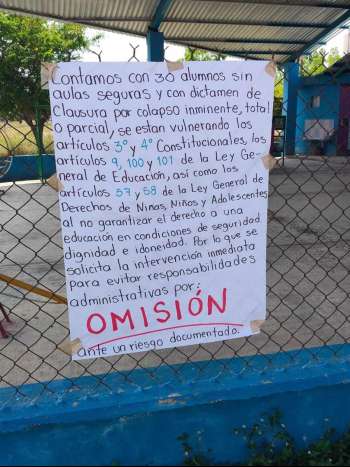 Contamos con 30 alumnos sin
aulas seguras y con dictamen de
Clausura por colapso inminente, total
o parcial, se estan vulnerando los
artículos 3° y 4° Constitucionales, los
artículos 9, 100 y 101 de la Ley Ge-
neral de Educación, así como los
artículos 57 y 58 de la Ley General de
Derechos de Ninas, Niños y Adolescentes
al no garantizar el derecho a una
educación en condiciones de seguridad
dignidad e idoneidad. Por lo que se
solicita la intervención inmediata
para evitar responsabilidades
administrativas por:
OMISIÓN
ante un riesgo documentado.